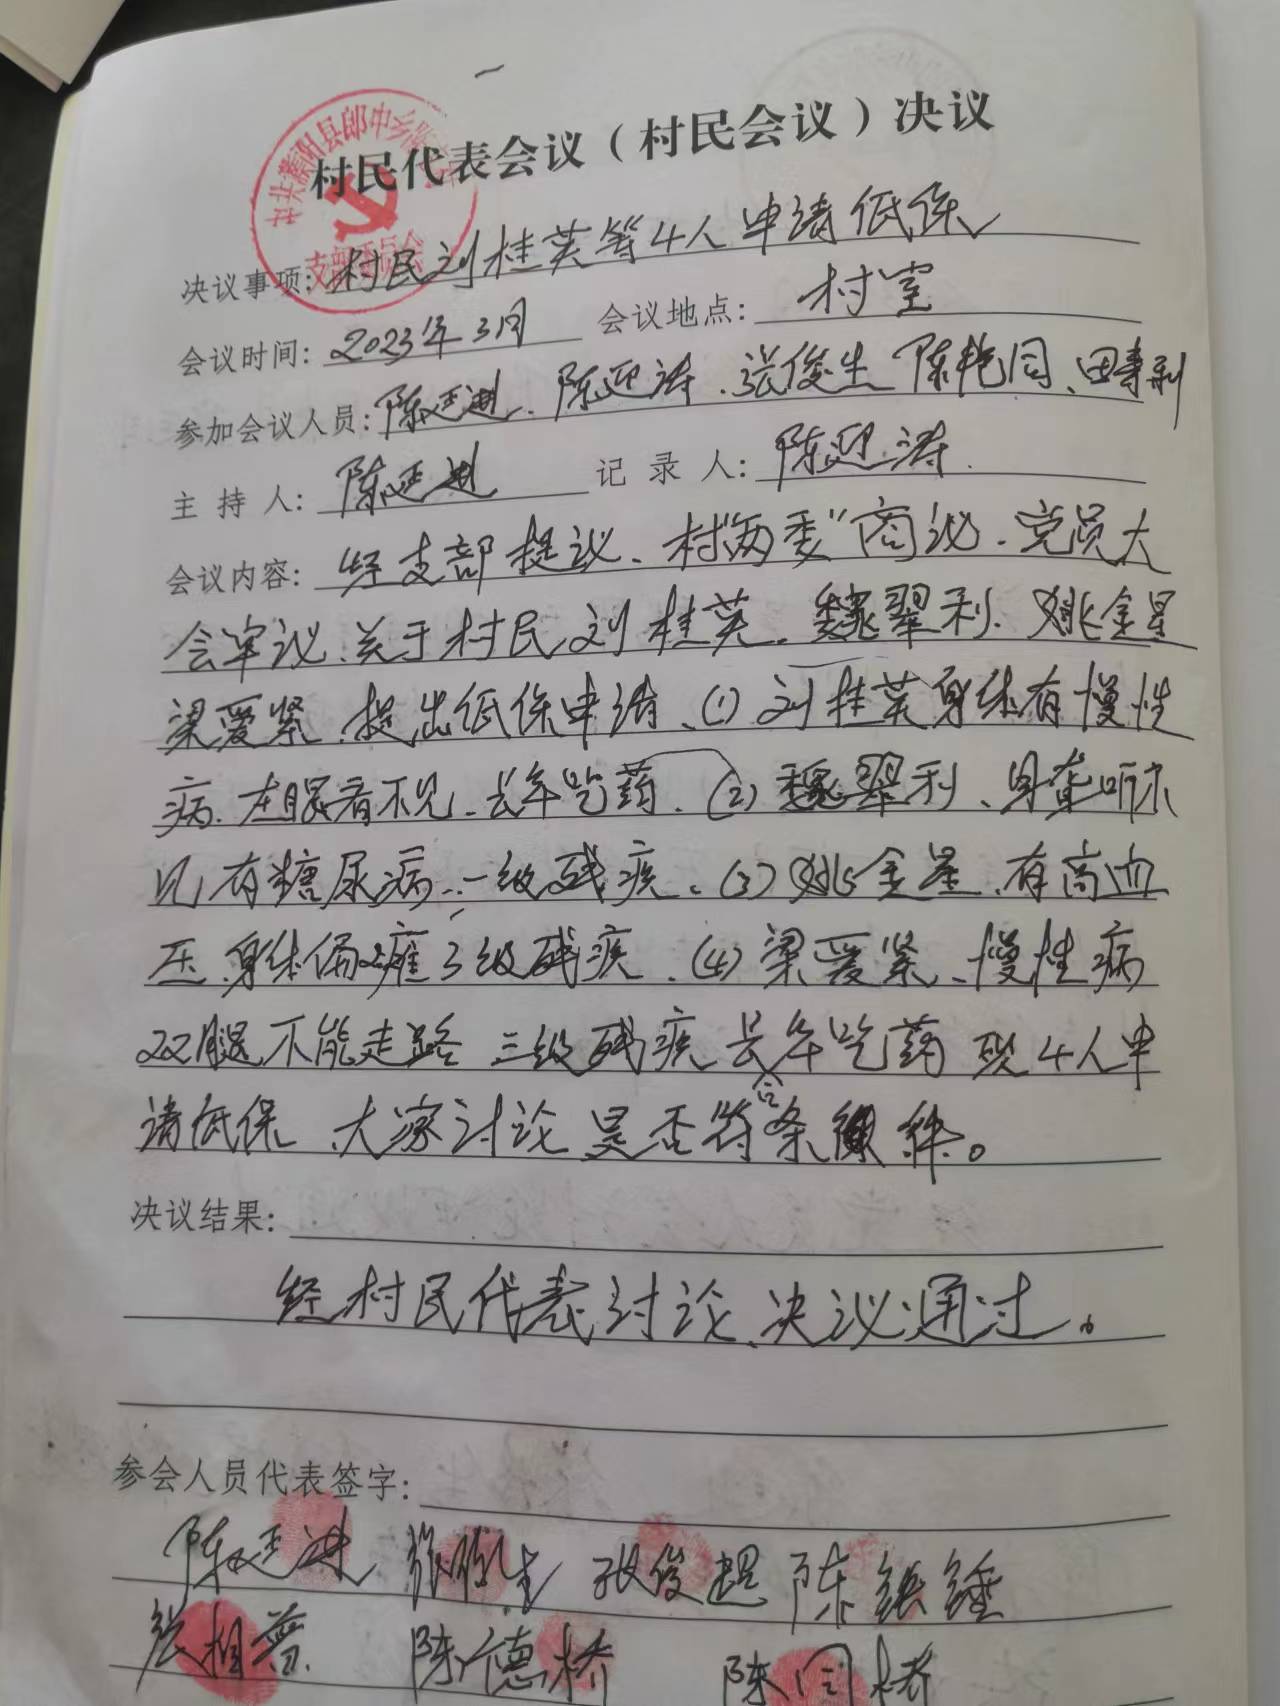 村民代表会议（村民会议）决议
中共濮阳县郎中乡
支部委员会
决议事项：村民刘桂英等4人申请低保
会议时间：2023年3月 会议地点：村室
参加会议人员：陈廷进、陈迎涛、张俊生 陈艳同、田寿利
主持人：陈廷进 记录人：陈迎涛
会议内容：经支部提议、村"两委"商议、党员大
会审议、关于村民刘桂英、魏翠利、姚金星
梁爱紧、提出低保申请、(1)刘桂英身体有慢性
病、左眼看不见、长年吃药、(2)魏翠利、耳聋听不
见有糖尿病、一级残疾、(3)姚金星、有高血
压、身体偏瘫3级残疾、(4)梁爱紧、慢性病
双腿不能走路 三级残疾长年吃药 现4人申
请低保、大家讨论是否符合条件。
决议结果：
经村民代表讨论、决议通过。
参会人员代表签字：
陈廷进 张俊生 张俊超 陈铁锤
张相普 陈德桥 陈同桥